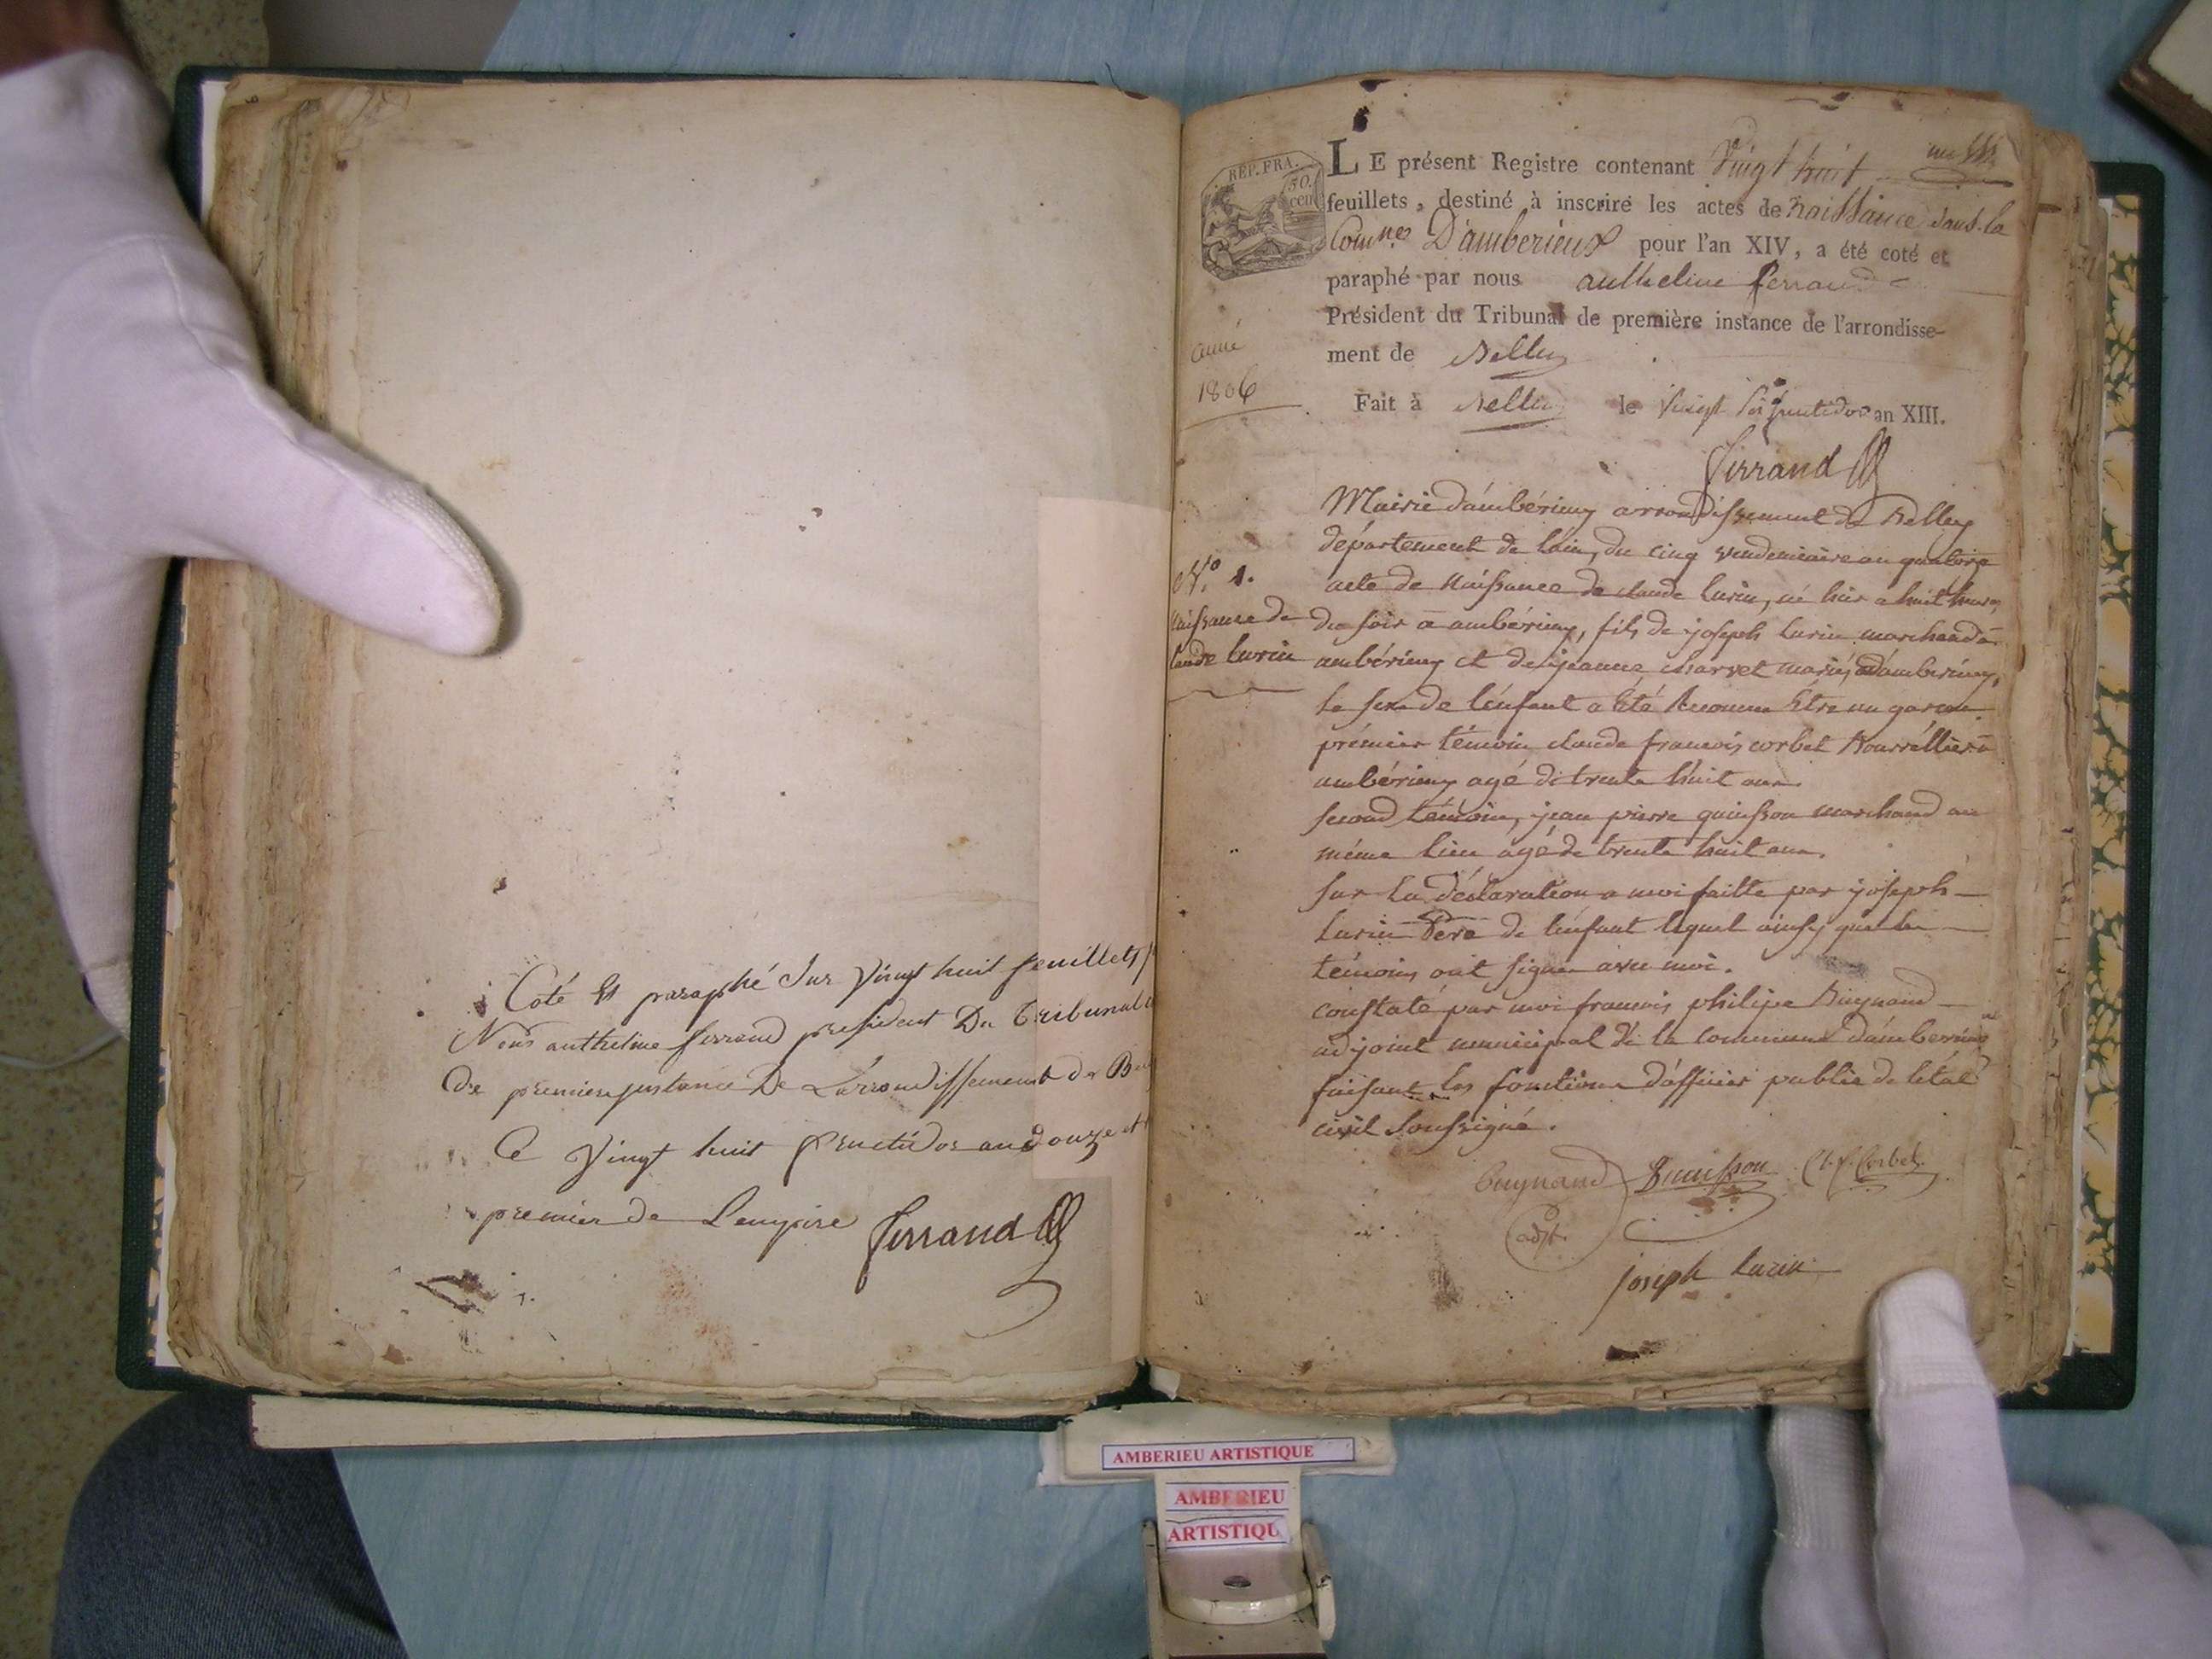 Coté Et paraphé Sur Vingt huit feuillets
Nous anthelme ferrand president Du Tribunal
De premier justance De L'arrondissement de
Ce Vingt huit fructidor an douze et
premier de L'empire ferrand
REP. FRA.
50.
cen
LE présent Registre contenant Vingt huit
feuillets, destiné à inscrire les actes de naissance dans la
Com.nes D'amberieux pour l'an XIV, a été coté et
paraphé par nous anthelme ferrand
Président du Tribunal de première instance de l'arrondisse-
ment de Belley
année
1806
Fait à Belley le Vingt fructidor an XIII.
ferrand
Mairie d'ambérieux arrondissement de Belley
département de l'ain, du cinq vendemiaire an quatorze
N.o 1.
acte de naissance de claude lurin, né hier a huit heures
naissance de
du soir a ambérieux, fils de joseph lurin marchand a
claude lurin
ambérieux et de jeanne charvet mariés d'amberieux,
le sexe de l'enfant a été Reconnu Etre un garçon
prémier témoin claude françois corbet Bourréllier a
ambérieux agé de trente huit ans
second témoin, jean pierre quinsson marchand au
même lieu agé de trente huit ans.
sur la déclaration a moi faitte par joseph
lurin Pere de l'enfant lequel ainsy que les
témoins ont signé avec moi.
constaté par moi françois philipe Buynand
adjoint municipal de la commune d'amberieux
faisant les fonctions d'officier public de l'état
civil soussigné.
Buynand Quinsson Cl. f. Corbet
adjt.
joseph lurin
AMBERIEU ARTISTIQUE
AMBERIEU
ARTISTIQU